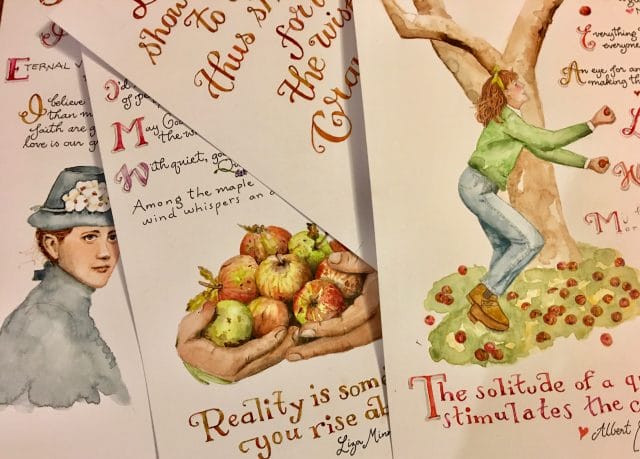 ETERNAL
I believe
than m
faith are g
love is our g
I'd
of pe
May Go
the w
With quiet, go
Among the maple
wind whispers an a
show
to
thus sh
for
the wis
Gra
Reality is som
you rise ab
Liza Minn
Everything
everyone
An eye for an
making th
L
W
Mu
Mor
The solitude of a qu
stimulates the c
Albert